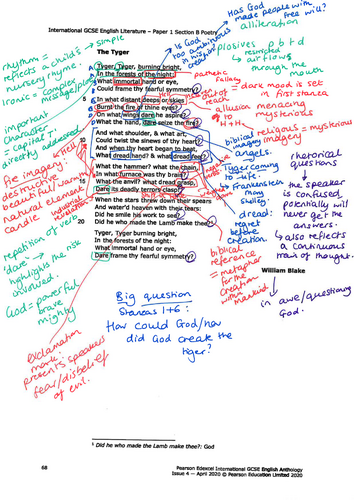 International GCSE English Literature – Paper 1 Section B Poetry
The Tyger
Tyger, Tyger, burning bright,
In the forests of the night:
What immortal hand or eye,
Could frame thy fearful symmetry?
In what distant deeps or skies
5
Burnt the fire of thine eyes?
On what wings dare he aspire?
What the hand, dare seize the fire?
And what shoulder, & what art,
10
Could twist the sinews of thy heart?
And when thy heart began to beat,
What dread hand? & what dread feet?
What the hammer? what the chain,
In what furnace was thy brain?
What the anvil? what dread grasp,
15
Dare its deadly terrors clasp?
When the stars threw down their spears
And water'd heaven with their tears:
Did he smile his work to see?
Did he who made the Lamb make thee?¹
20
Tyger Tyger, burning bright,
In the forests of the night:
What immortal hand or eye,
Dare frame thy fearful symmetry?
William Blake
simple
rhythm =
reflects a child's
nursery rhyme.
Ironic = complex
message/
important
character
= capital T.
directly addressed
fire imagery:
destructive
beautiful/warm
natural element
candle
industrial
revolution
repetition of verb
'dare' → risk
highlights the
risk
involved.
God = powerful
brave
mighty
exclamation
mark:
presents speakers
fear/disbelief
of evil.
Is God
too ambitious
in
creating
Has God
made people with
free will?
alliteration
plosives p b t d
restricted
air flows
through the
mouth
pathetic
fallacy
= dark mood is set
in first stanza
out of
reach
allusion menacing
to
mysterious
biblical
imagery
angels.
religious = mysterious
imagery
tyger coming
to life.
Frankenstein
Mary
Shelley
dread:
regret
before
creation.
biblical
reference
= metaphor
for the
creation
of
mankind
rhetorical
questions
↓
the speaker
is confused,
potentially will
never get the
answers.
→ also reflects
a continuous
train of thought.
↓
in awe/questioning
God.
Big question
Stanzas 1+6:
How could God/how
did God create the
tiger?
¹ Did he who made the Lamb make thee?: God
68
Pearson Edexcel International GCSE English Anthology
Issue 4 – April 2020 © Pearson Education Limited 2020